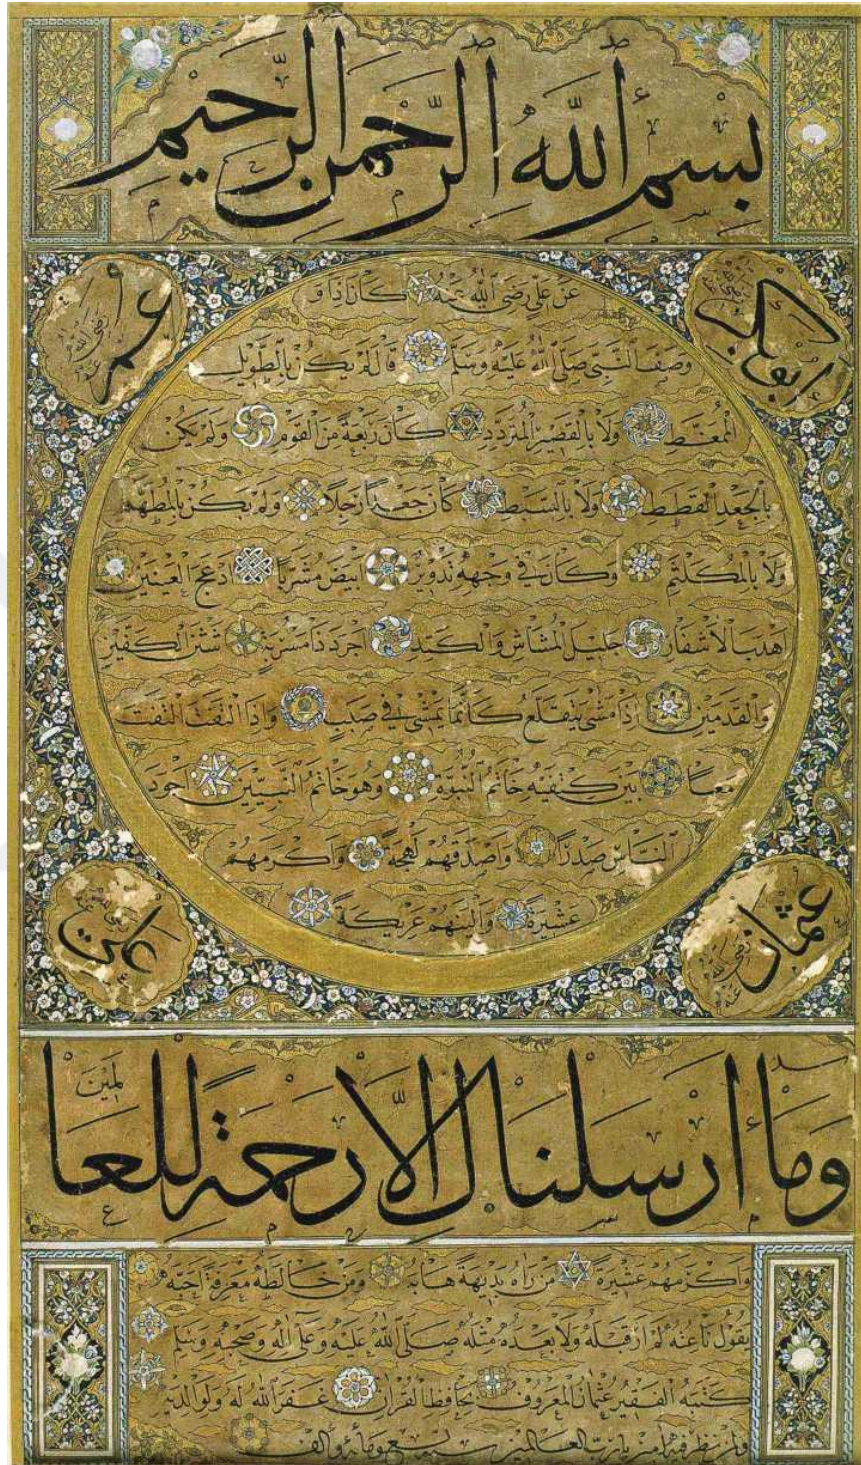 بسم الله الرحمن الرحيم
ابو بكر رضي الله عنه
عمر رضي الله عنه
عن علي رضي الله عنه كان اذا و
وصف النبي صلى الله عليه وسلم قال لم يكن بالطويل
الممغط ولا بالقصير المتردد كان ربعة من القوم ولم يكن
بالجعد القطط ولا بالسبط كان جعدا رجلا ولم يكن بالمطهم
ولا بالمكلثم وكان في وجهه تدوير ابيض مشربا ادعج العينين
اهدب الاشفار جليل المشاش والكتد اجرد ذا مسربة شثن الكفين
والقدمين اذا مشى يتقلع كانما يمشي في صبب واذا التفت التفت
معا بين كتفيه خاتم النبوة وهو خاتم النبيين اجود
الناس صدرا واصدقهم لهجة واكرمهم
عشيرة والينهم عريكة
عثمان رضي الله عنه
علي
وما ارسلناك الا رحمة للعالمين
واكرمهم عشيرة من راه بديهة هابه ومن خالطه معرفة احبه
يقول ناعته لم ار قبله ولا بعده مثله صلى الله عليه وعلى اله وصحبه وسلم
كتبه الفقير عثمان المعروف بحافظ القران غفر الله له ولوالديه
ولمن نظر فيه امين يا رب العالمين ومائة والف